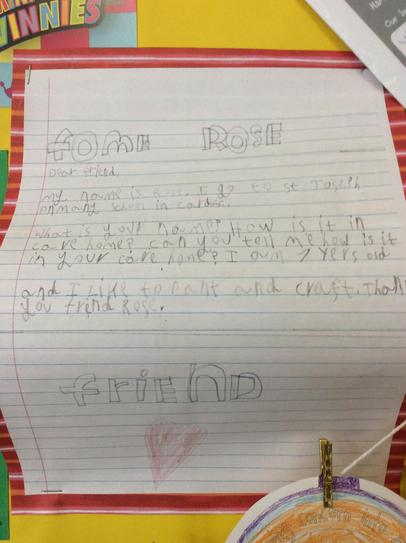 WINNIES
fome ROSE
Dear friend,
my name is Rose. I go to st Joseph
school in
What is your name? How is it in
care home? can you tell me how is it
in your care home? I am 7 yers old
and I Like to pant and craft. Than
you frend Rose.
frieND